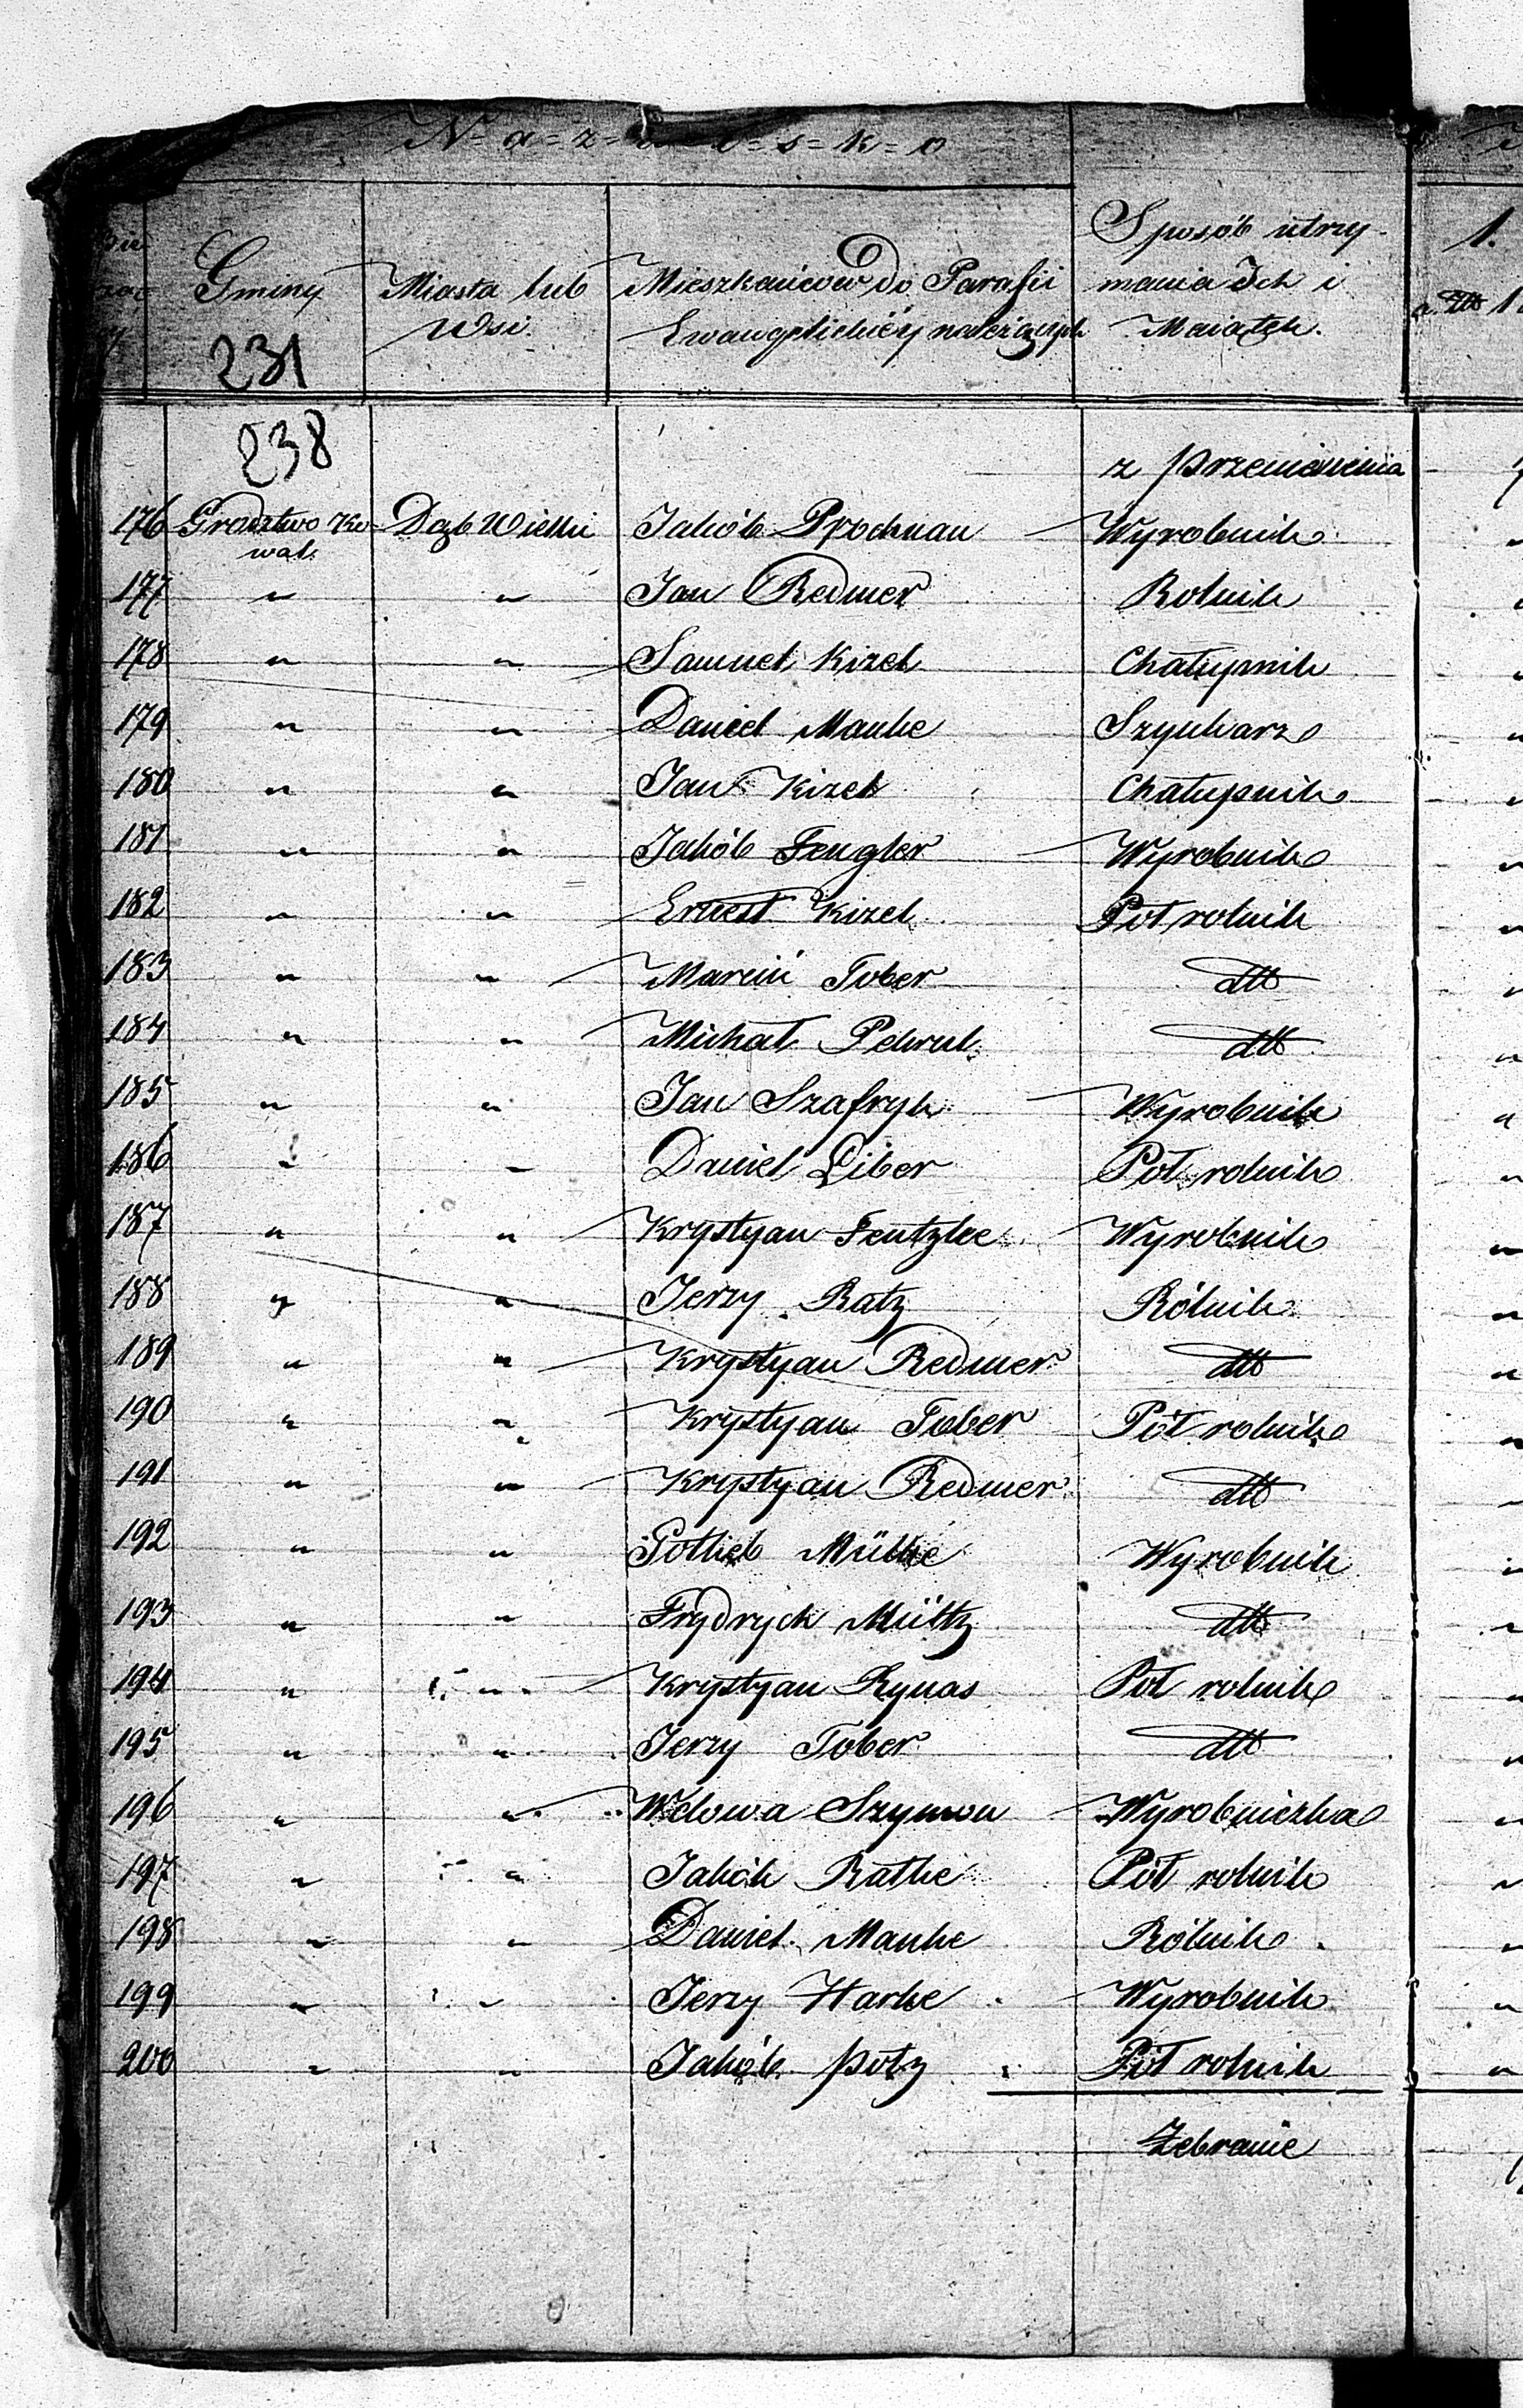 N=a=z=w=i=s=k=o
Gminy Miasta lub Wsi. Mieszkańców do Parafii Ewangelickiéy należących Sposób utrzymania Ich i Maiątek. 1.
231
238
z przeniesienia
176 Grodztwo Kowal. Dąb Wielki Jakób Prochnau Wyrobnik
177 " " Jan Redmer Rolnik
178 " " Samuel Kizel Chałupnik
179 " " Daniel Manke Szynkarz
180 " " Jan Kizel Chałupnik
181 " " Jakób Fengler Wyrobnik
182 " " Ernest Kizel Pół rolnik
183 " " Marcin Tober dtto
184 " " Michał Pekrul dtto
185 " " Jan Szafryk Wyrobnik
186 " " Daniel Liber Pół rolnik
187 " " Krystyan Fentzke Wyrobnik
188 " " Jerzy Ratz Rólnik
189 " " Krystyan Redmer dtto
190 " " Krystyan Tober Pół rolnik
191 " " Krystyan Redmer dtto
192 " " Gotlieb Müllke Wyrobnik
193 " " Frydryck Mültz dtto
194 " " Krystyan Rynas Pół rolnik
195 " " Jerzy Tober dtto
196 " " Wdowa Szymon Wyrobniczka
197 " " Jakób Ratke Pół rolnik
198 " " Daniel Manke Rólnik
199 " " Jerzy Harke Wyrobnik
200 " " Jakób Potz Pół rolnik
Zebranie